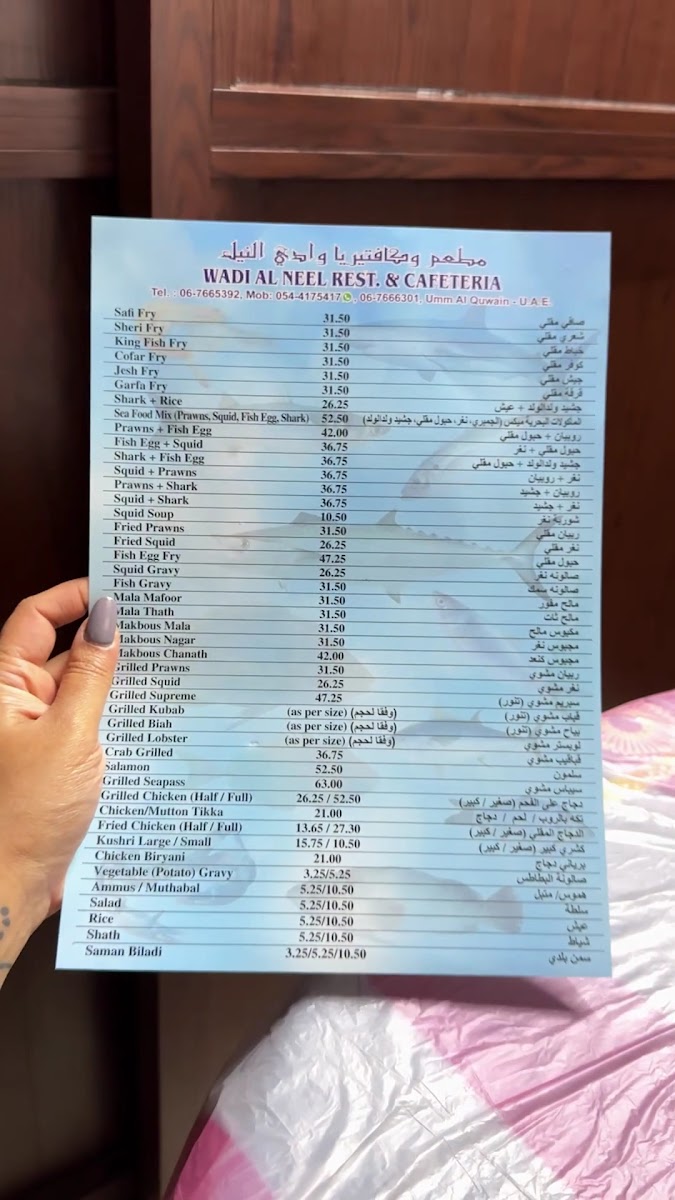 مطعم وكافتيريا وادي النيل
WADI AL NEEL REST. & CAFETERIA
Tel. : 06-7665392, Mob: 054-4175417, 06-7666301, Umm Al Quwain - U.A.E.
Safi Fry 31.50 صافي مقلي
Sheri Fry 31.50 شعري مقلي
King Fish Fry 31.50 خباط مقلي
Cofar Fry 31.50 كوفر مقلي
Jesh Fry 31.50 جيش مقلي
Garfa Fry 31.50 قرفه مقلي
Shark + Rice 26.25 جشيد ولدالولد + عيش
Sea Food Mix (Prawns, Squid, Fish Egg, Shark) 52.50 المكولات البحرية ميكس (الجمبري، نغر، حبول مقلي، جشيد ولدالولد)
Prawns + Fish Egg 42.00 روبيان + حبول مقلي
Fish Egg + Squid 36.75 حبول مقلي + نغر
Shark + Fish Egg 36.75 جشيد ولدالولد + حبول مقلي
Squid + Prawns 36.75 نغر + روبيان
Prawns + Shark 36.75 روبيان + جشيد
Squid + Shark 36.75 نغر + جشيد
Squid Soup 10.50 شوربة نغر
Fried Prawns 31.50 ربيان مقلي
Fried Squid 26.25 نغر مقلي
Fish Egg Fry 47.25 حبول مقلي
Squid Gravy 26.25 صالونه نغر
Fish Gravy 31.50 صالونه سمك
Mala Mafoor 31.50 مالح مفور
Mala Thath 31.50 مالح ثاث
Makbous Mala 31.50 مكبوس مالح
Makbous Nagar 31.50 مجبوس نغر
Makbous Chanath 42.00 مجبوس كنعد
Grilled Prawns 31.50 ربيان مشوي
Grilled Squid 26.25 نغر مشوي
Grilled Supreme 47.25 سبريم مشوي (تنور)
Grilled Kubab (as per size) (وفقا لحجم) قباب مشوي (تنور)
Grilled Biah (as per size) (وفقا لحجم) بياح مشوي (تنور)
Grilled Lobster (as per size) (وفقا لحجم) لوبستر مشوي
Crab Grilled 36.75 قباقيب مشوي
Salamon 52.50 سلمون
Grilled Seapass 63.00 سيباس مشوي
Grilled Chicken (Half / Full) 26.25 / 52.50 دجاج على الفحم (صغير / كبير)
Chicken/Mutton Tikka 21.00 تكه بالروب / لحم / دجاج
Fried Chicken (Half / Full) 13.65 / 27.30 الدجاج المقلي (صغير / كبير)
Kushri Large / Small 15.75 / 10.50 كشري كبير (صغير / كبير)
Chicken Biryani 21.00 برياني دجاج
Vegetable (Potato) Gravy 3.25/5.25 صالونة البطاطس
Ammus / Muthabal 5.25/10.50 حموس/ متبل
Salad 5.25/10.50 سلطة
Rice 5.25/10.50 عيش
Shath 5.25/10.50 شباط
Saman Biladi 3.25/5.25/10.50 سمن بلدي